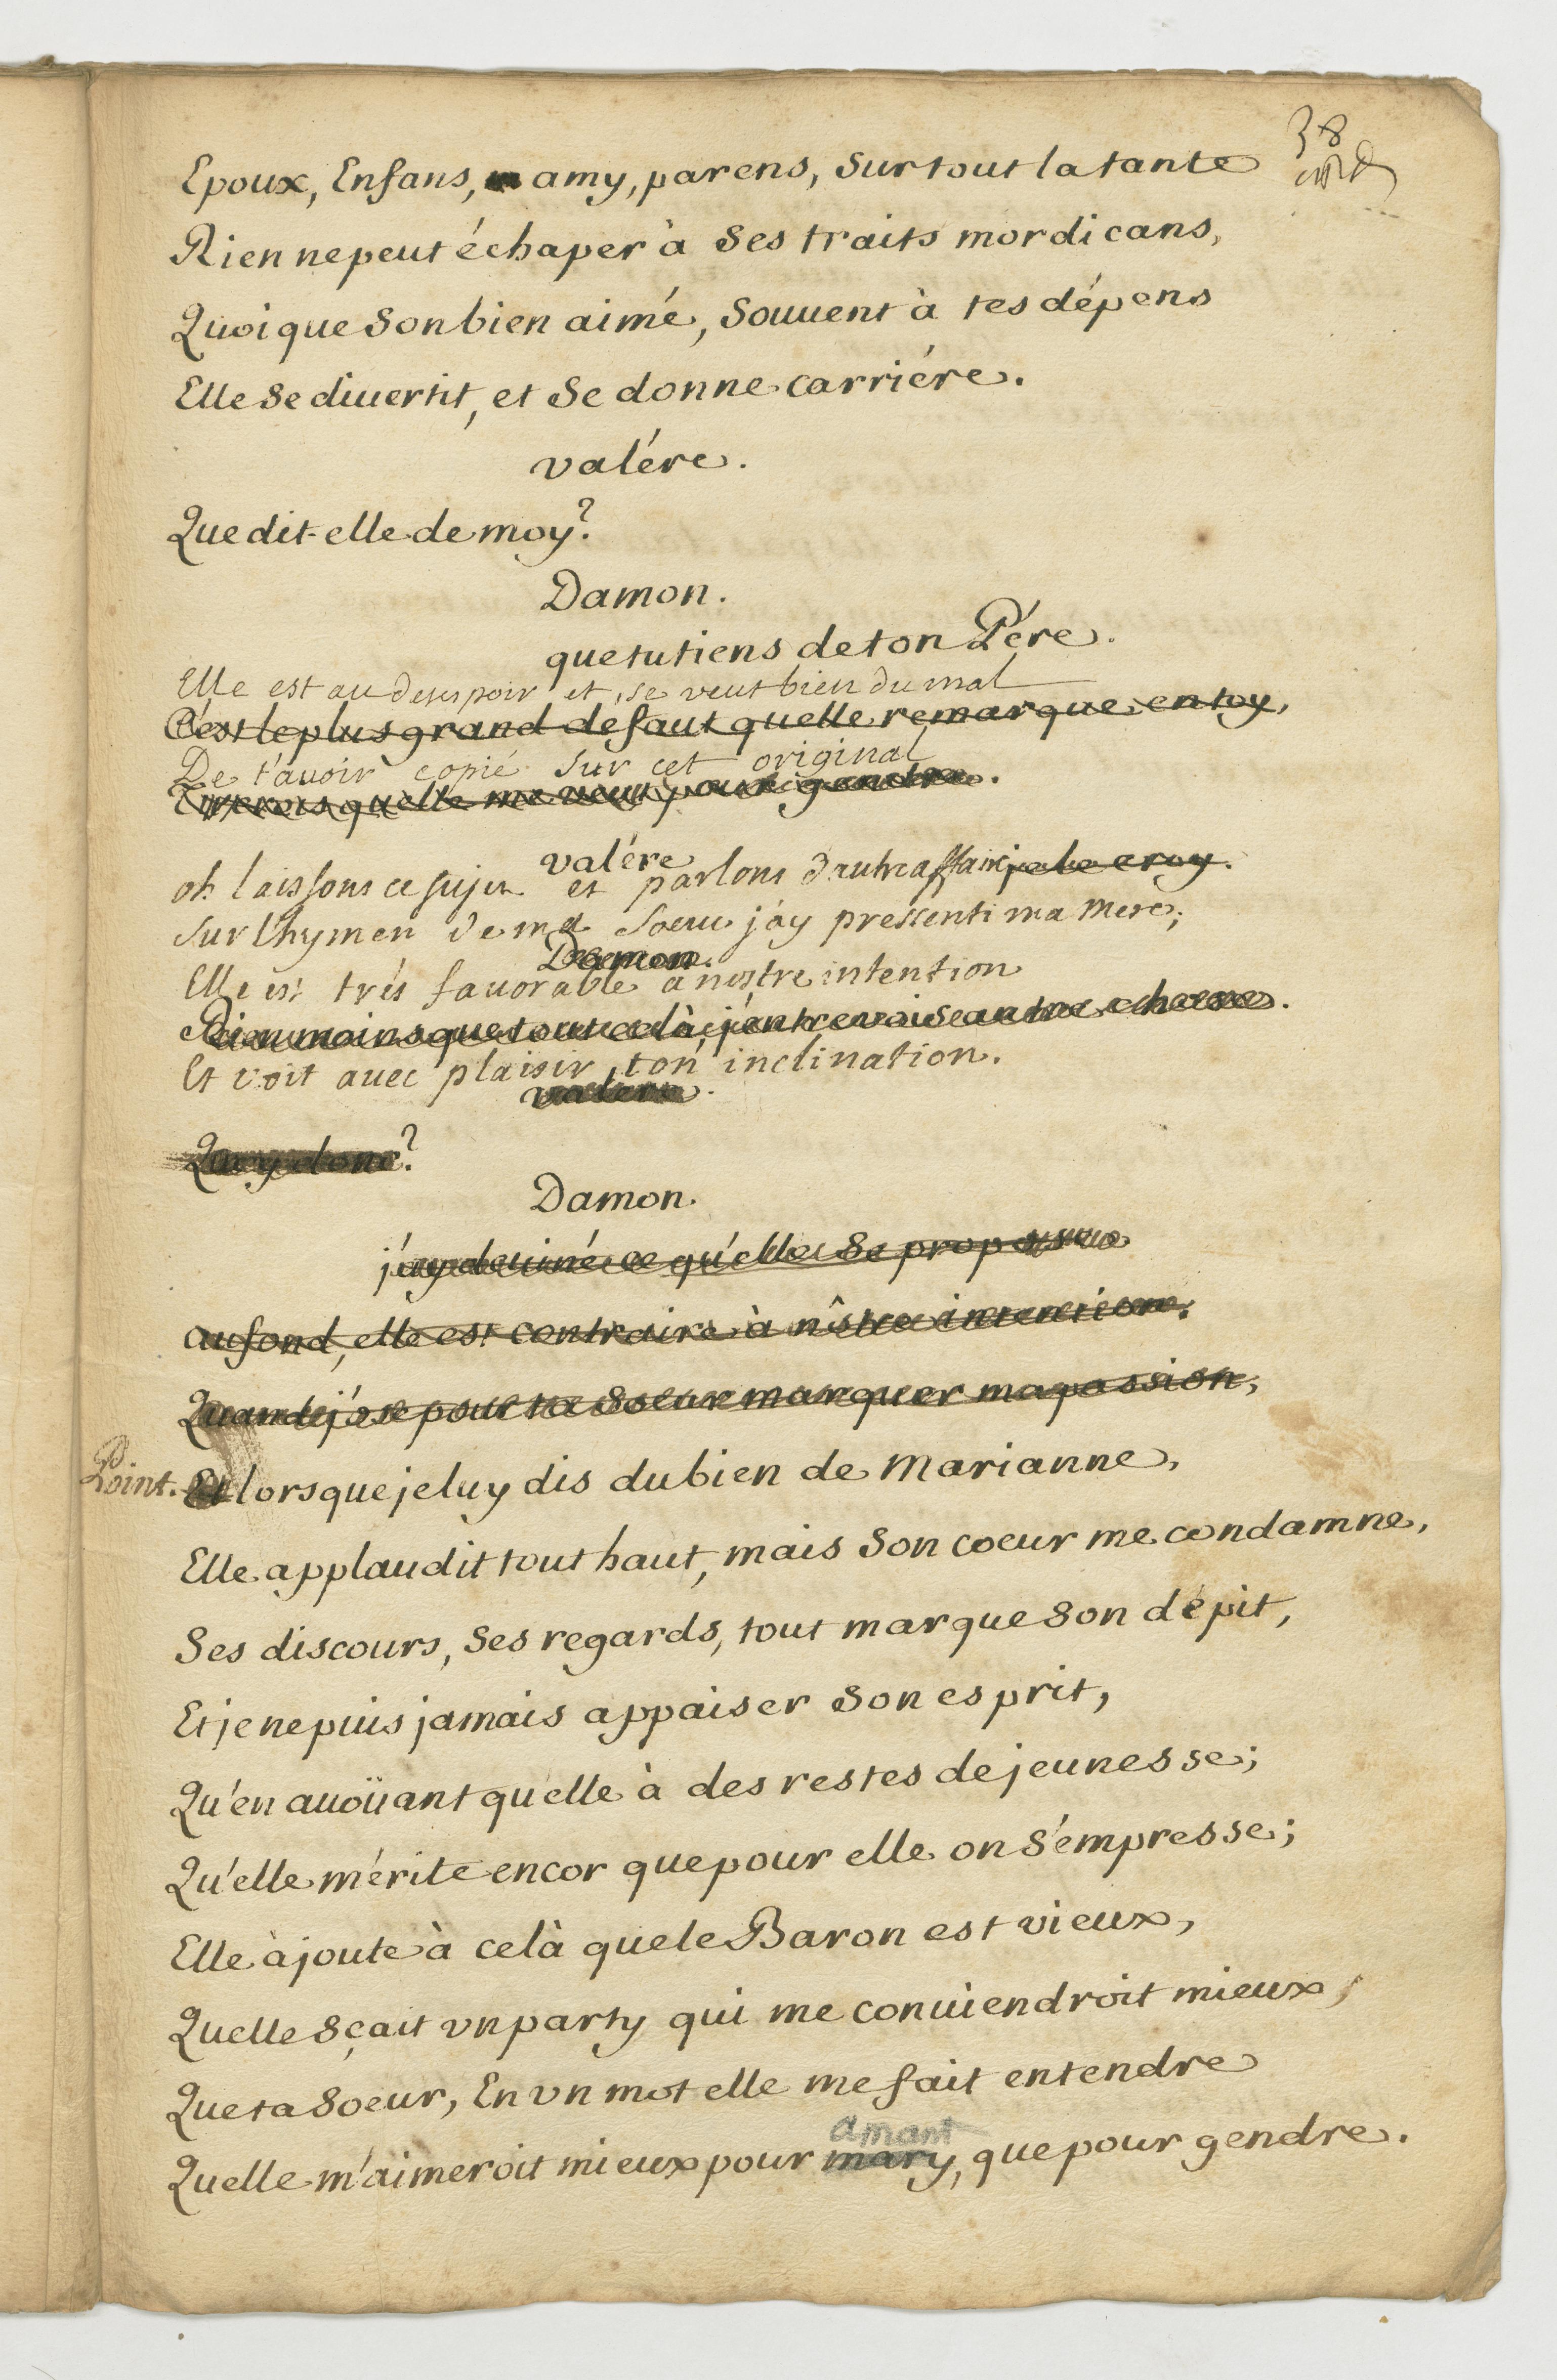 38
Epoux, Enfans, amy, parens, Surtout la tante
Rien ne peut échaper à Ses traits mordicans,
Quoique Son bien aimé, Souuent à tes dépens
Elle Se diuertit, et Se donne carriére.
valére.
Que dit-elle de moy?
Damon.
que tu tiens de ton Pére.
Elle est au desespoir et se veut bien du mal
C'est le plus grand defaut quelle remarque en toy,
De t'auoir copié Sur cet original
quelle me veut pour gendre.
valére
oh laissons ce sujet et parlons d'autre affaire je le croy.
Sur l'hymen de ma Soeur j'ay pressenti ma Mere;
Damon.
Elle est trés fauorable a nostre intention
Rien moins que tout celà, j'entrevois autre chose.
Et voit auec plaisir ton inclination.
valere.
Quoy donc?
Damon.
j'ay deuiné ce qu'elle Se propose
au fond, elle est contraire à nôstre intention.
Quand j'ose pour ta Soeur marquer ma passion,
Point. Et lors que je luy dis du bien de Marianne,
Elle applaudit tout haut, mais Son coeur me condamne,
Ses discours, Ses regards, tout marque Son dépit,
Et je ne puis jamais appaiser Son esprit,
Qu'en auoüant qu'elle à des restes de jeunesse;
Qu'elle mérite encor que pour elle on S'empresse;
Elle ajoute à celà que le Baron est vieux,
Quelle Sçait vn party qui me conuiendroit mieux,
Que ta Soeur, En vn mot elle me fait entendre
amant
Quelle m'aimeroit mieux pour mary, que pour gendre.